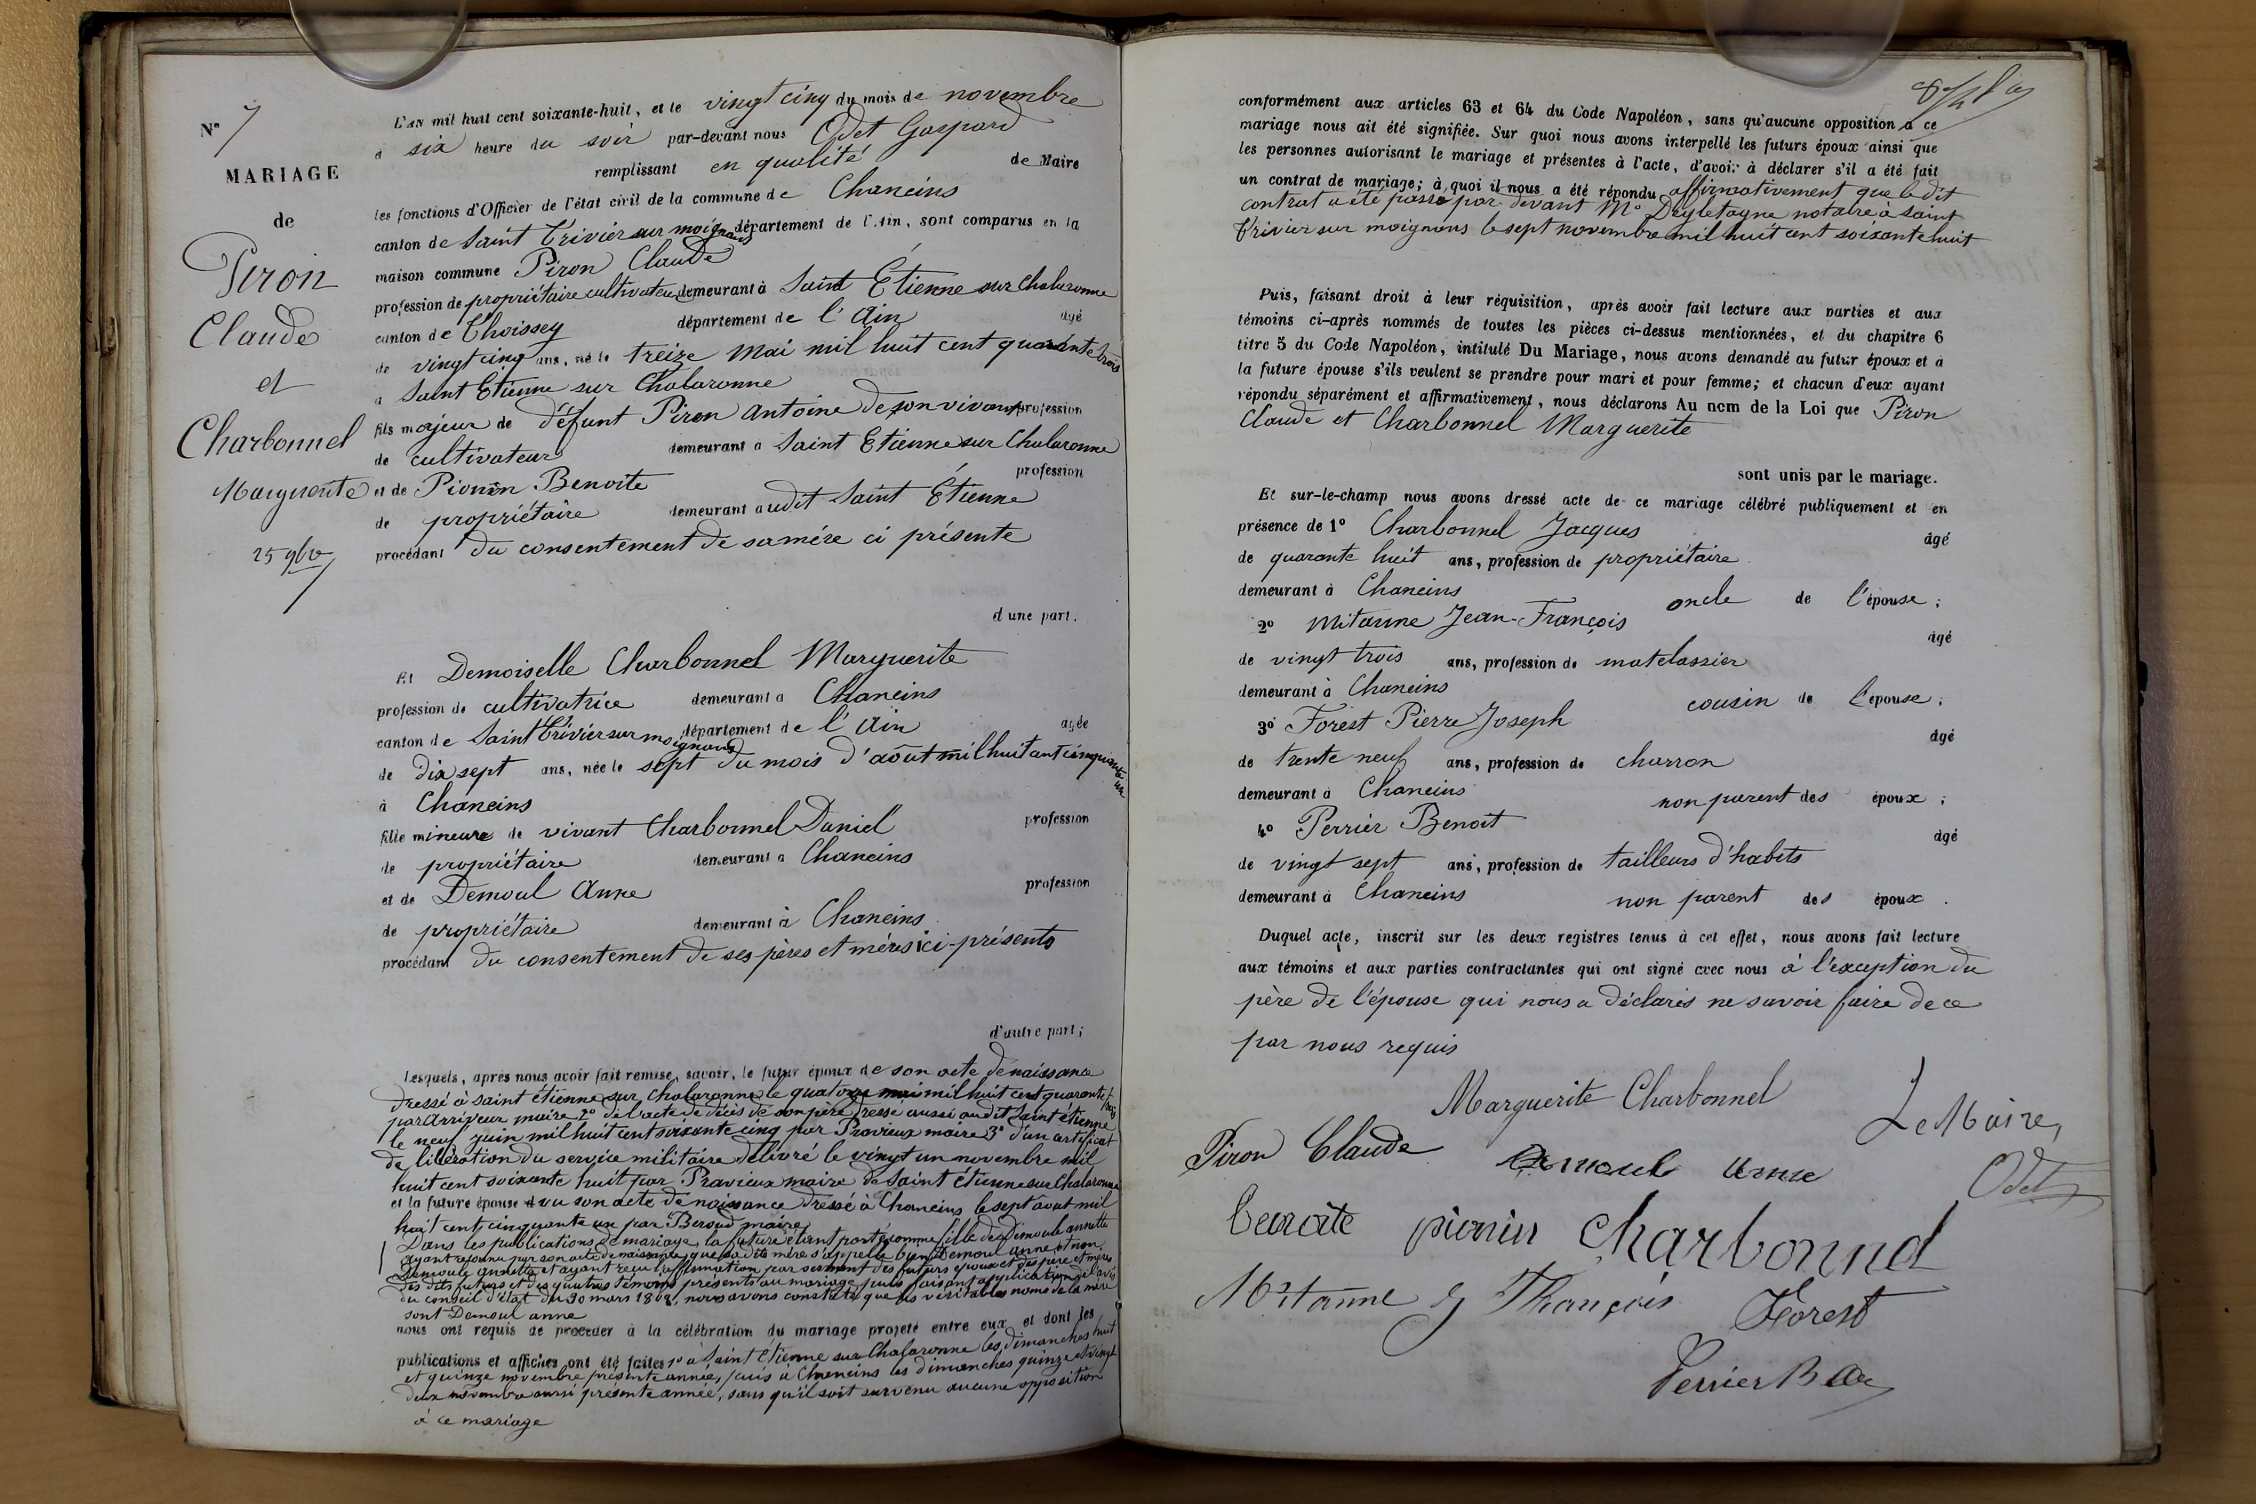 N° 7
MARIAGE
de
Piron
Claude
et
Charbonnel
Marguerite
25 9bre
L'AN mil huit cent soixante-huit, et le vingt cinq du mois de novembre
à six heure du soir par-devant nous Odet Gaspard
remplissant en qualité de Maire
les fonctions d'Officier de l'état civil de la commune de Chaneins
canton de Saint Trivier sur moignans département de l'Ain, sont comparus en la
maison commune Piron Claude
profession de propriétaire cultivateur demeurant à Saint Etienne sur Chalaronne
canton de Thoissey département de l'Ain âgé
de vingt cinq ans, né le treize Mai mil huit cent quarante trois
à Saint Etienne sur Chalaronne
fils majeur de défunt Piron Antoine de son vivant profession
de cultivateur demeurant à Saint Etienne sur Chalaronne
et de Pionin Benoite profession
de propriétaire demeurant audit Saint Étienne
procédant du consentement de sa mére ci présente
d'une part.
Et Demoiselle Charbonnel Marguerite
profession de cultivatrice demeurant à Chaneins
canton de Saint Trivier sur moignans département de l'Ain agée
de dix sept ans, née le sept du mois d'août mil huit cent cinquante un
à Chaneins
fille mineure de vivant Charbonnel Daniel profession
de propriétaire demeurant à Chaneins
et de Demoul Anne profession
de propriétaire demeurant à Chaneins
procédant du consentement de ses pères et méres ici-présents
d'autre part;
Lesquels, après nous avoir fait remise, savoir, le futur époux de son acte de naissance
dressé à saint étienne sur Chalaronne le quatorze mai mil huit cent quarante trois
par Arriveur maire 2° de l'acte de décès de son père dressé aussi audit Saint étienne
le neuf juin mil huit cent soixante cinq par Pravieux maire 3° d'un certificat
de libération du service militaire délivré le vingt un novembre mil
huit cent soixante huit par Pravieux maire de Saint étienne sur Chalaronne
et la future épouse vu son acte de naissance dressé à Chaneins le sept août mil
huit cent cinquante un par Beroud maire
Dans les publications de mariage la future étant portée comme fille de Demoule annette
ayant reconnu par son acte de naissance que sa dite mère s'appelle bien Demoul anne et non
Demoule annette et ayant reçu l'affirmation par serment des futurs époux et des père et mères
des dits futurs et des quatres témoins présents au mariage, puis faisant application de l'avis
du conseil d'état du 30 mars 1808, nous avons constaté que les véritables noms de la mère
sont Demoul anne
nous ont requis de procéder à la célébration du mariage projeté entre eux et dont les
publications et affiches ont été faites 1° à Saint Etienne sur Chalaronne les dimanches huit
et quinze novembre présente année, puis à Chaneins les dimanches quinze et vingt
deux novembre aussi présente année, sans qu'il soit survenu aucune opposition
à ce mariage
conformément aux articles 63 et 64 du Code Napoléon, sans qu'aucune opposition à ce
mariage nous ait été signifiée. Sur quoi nous avons interpellé les futurs époux ainsi que
les personnes autorisant le mariage et présentes à l'acte, d'avoir à déclarer s'il a été fait
un contrat de mariage; à quoi il nous a été répondu affirmativement que le dit
contrat a été passé par devant Me notaire à Saint
Trivier sur moignans le sept novembre mil huit cent soixante huit
Puis, faisant droit à leur réquisition, après avoir fait lecture aux parties et aux
témoins ci-après nommés de toutes les pièces ci-dessus mentionnées, et du chapitre 6
titre 5 du Code Napoléon, intitulé Du Mariage, nous avons demandé au futur époux et à
la future épouse s'ils veulent se prendre pour mari et pour femme; et chacun d'eux ayant
répondu séparément et affirmativement, nous déclarons Au nom de la Loi que Piron
Claude et Charbonnel Marguerite
sont unis par le mariage.
Et sur-le-champ nous avons dressé acte de ce mariage célébré publiquement et en
présence de 1° Charbonnel Jacques âgé
de quarante huit ans, profession de propriétaire
demeurant à Chaneins oncle de l'épouse;
2° Mitanne Jean-François âgé
de vingt trois ans, profession de matelassier
demeurant à Chaneins cousin de l'épouse;
3° Forest Pierre Joseph âgé
de trente neuf ans, profession de charron
demeurant à Chaneins non parent des époux;
4° Perrier Benoit âgé
de vingt sept ans, profession de tailleurs d'habits
demeurant à Chaneins non parent des époux.
Duquel acte, inscrit sur les deux registres tenus à cet effet, nous avons fait lecture
aux témoins et aux parties contractantes qui ont signé avec nous à l'exception du
père de l'épouse qui nous a déclarés ne savoir faire de ce
par nous requis
Marguerite Charbonnel
Le Maire,
Piron Claude Demoul anne
Odet
Benoite pionin Charbonnel
Mitanne J François Forest
Perrier B